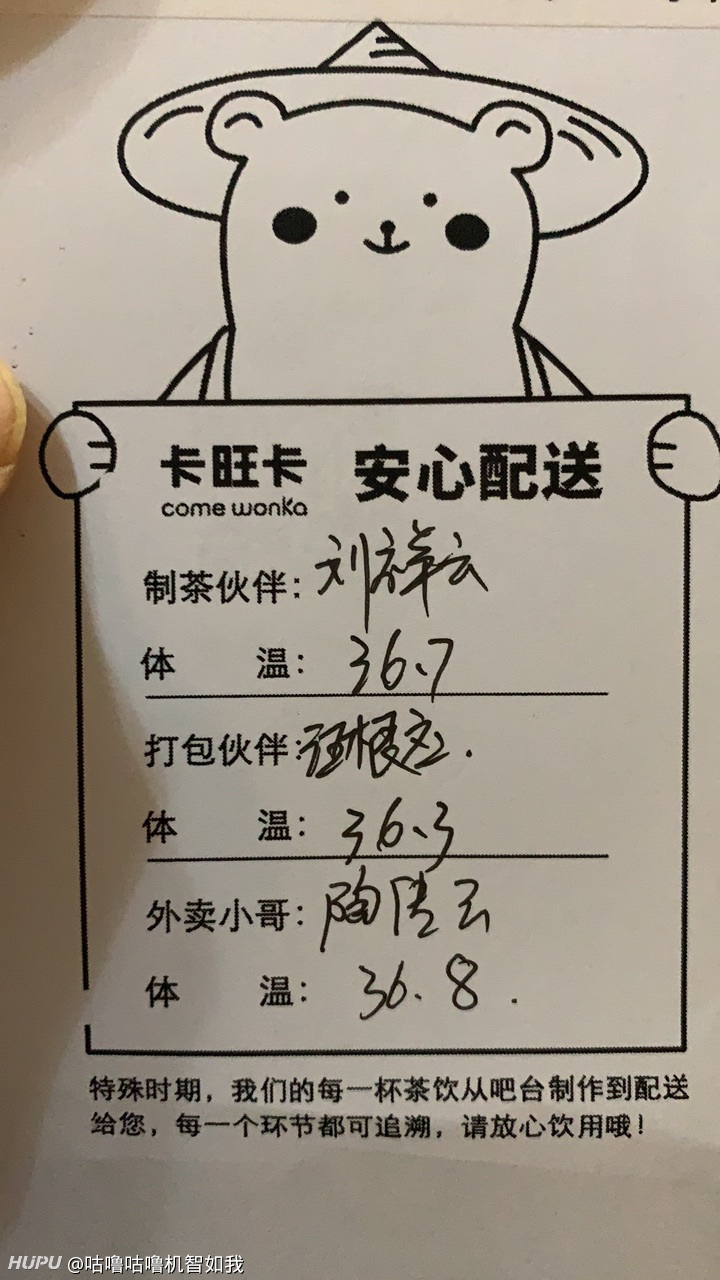 卡旺卡 安心配送
come wonka
制茶伙伴：刘祥云
体 温：36.7
打包伙伴：
体 温：36.3
外卖小哥：陶
体 温：36.8.
特殊时期，我们的每一杯茶饮从吧台制作到配送
给您，每一个环节都可追溯，请放心饮用哦！
HUPU @咕噜咕噜机智如我